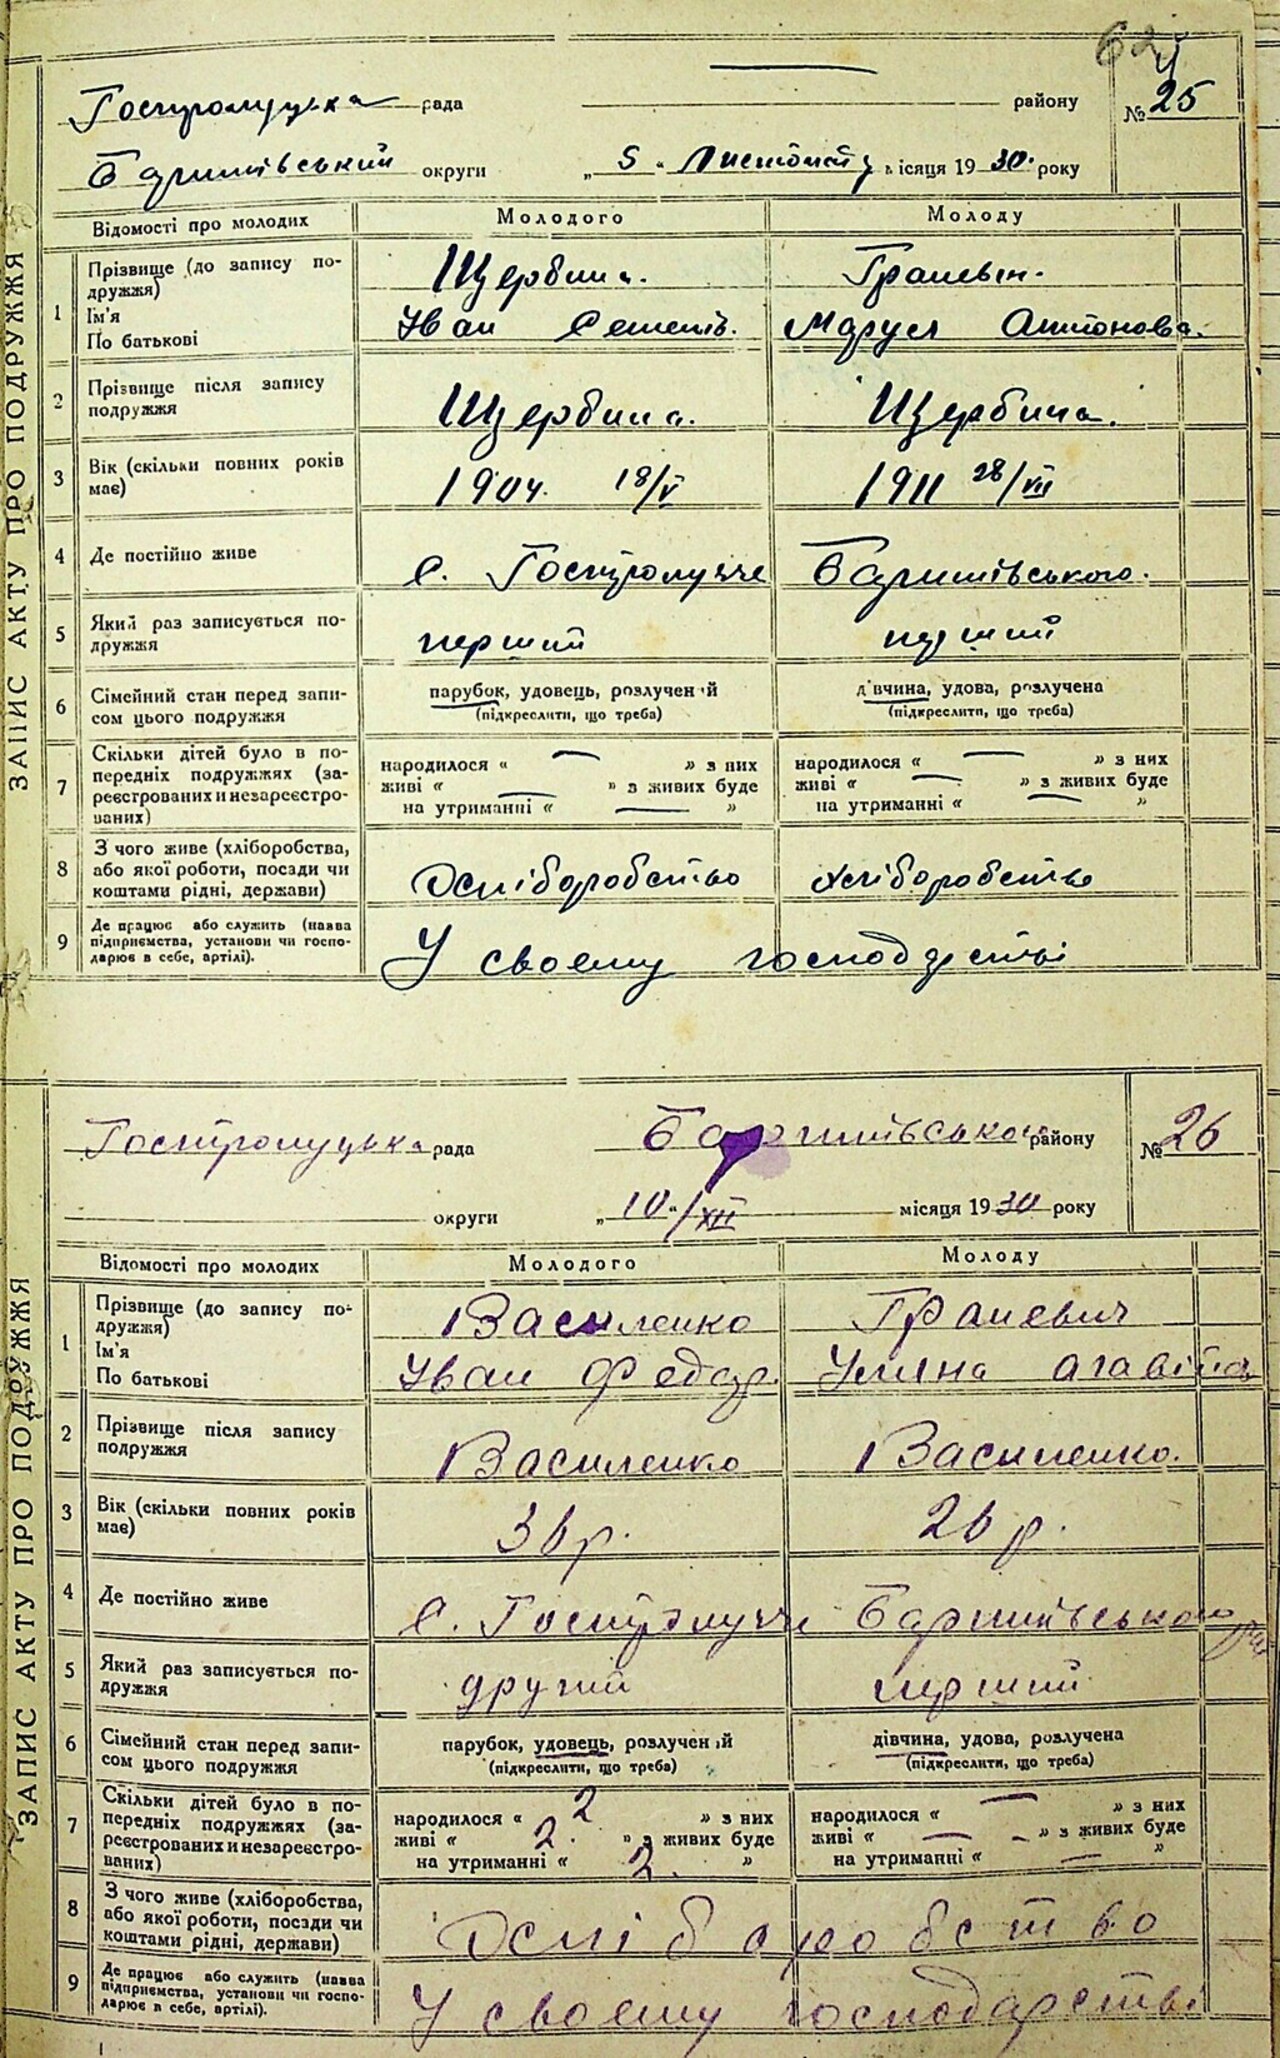 62
Гостролуцька рада району № 25
Баришівський округи „5“ Листопаду місяця 1930 року
ЗАПИС АКТУ ПРО ПОДРУЖЖЯ
Відомості про молодих Молодого Молоду
1 Прізвище (до запису по-
дружжя) Щербина.
Ім'я
По батькові Иван Семенів. Маруся Антонова.
2 Прізвище після запису
подружжя Щербина. Щербина.
3 Вік (скільки повних років
має) 1904. 18/V 1911 28/VII
4 Де постійно живе с. Гостролуччє Баришівського.
5 Який раз записується по-
дружжя перший перший
6 Сімейний стан перед запи-
сом цього подружжя парубок, удовець, розлучений дівчина, удова, розлучена
(підкреслити, що треба) (підкреслити, що треба)
7 Скільки дітей було в по-
передніх подружжях (за-
реєстрованих и незареєстро-
ваних)
народилося „ — ” з них народилося „ — ” з них
живі „ — ” з живих буде живі „ — ” з живих буде
на утриманні „ — ” на утриманні „ — ”
8 З чого живе (хліборобства,
або якої роботи, посади чи
коштами рідні, держави) Хліборобство хліборобство
9 Де працює або служить (назва
підприємства, установи чи госпо-
дарює в себе, артілі). У своему господарстві
Гостролуцька рада Баришівського району № 26
округи „10“/XII місяця 1930 року
ЗАПИС АКТУ ПРО ПОДРУЖЖЯ
Відомості про молодих Молодого Молоду
1 Прізвище (до запису по-
дружжя) Василенко Граневич
Ім'я
По батькові Иван Федор. Уляна
2 Прізвище після запису
подружжя Василенко Василенко.
3 Вік (скільки повних років
має) 36 р. 26 р.
4 Де постійно живе с. Гостролуччє Баришівського
5 Який раз записується по-
дружжя другий перший
6 Сімейний стан перед запи-
сом цього подружжя парубок, удовець, розлучений дівчина, удова, розлучена
(підкреслити, що треба) (підкреслити, що треба)
7 Скільки дітей було в по-
передніх подружжях (за-
реєстрованих и незареєстро-
ваних)
народилося „ 2 ” з них народилося „ — ” з них
живі „ 2. ” з живих буде живі „ — ” з живих буде
на утриманні „ 2. ” на утриманні „ — ”
8 З чого живе (хліборобства,
або якої роботи, посади чи
коштами рідні, держави) Хліборобство
9 Де працює або служить (назва
підприємства, установи чи госпо-
дарює в себе, артілі). У своему господарстві